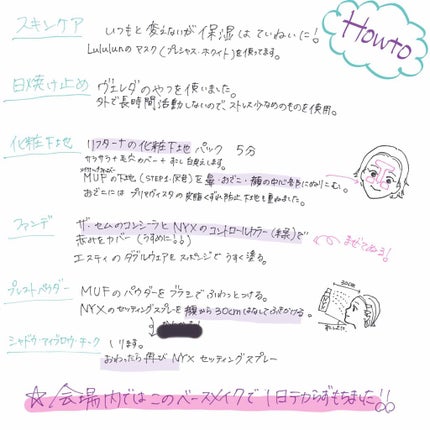 Howto
スキンケア
いつもと変えないが保湿はていねいに!
Lululunのマスク(プレシャス・ホワイト)を使ってます。
日焼け止め
ヴェレダのやつを使いました。
外で長時間活動しないので、ストレス少なめのものを使用。
化粧下地
リフターナの化粧下地 パック 5分
MUFの下地(STEP1・灰色)を鼻・おでこ・顔の中心部にぬりこむ。
おでこにはプリマヴィスタの皮脂くずれ防止下地も重ねました。
ファンデ
ザ・セムのコンシーラとNYXのコントロールカラー(緑)で
赤みをカバー(うすめに!!)
まぜてぬる!
エスティのダブルウェアをスポンジでうすく塗る。
プレストパウダー
MUFのパウダーをブラシでふわっとつける。
NYXのセッティングスプレーを顔から30cmはなしてふきかける。
30cm
シャドウ・アイブロウ・チーク
します。
おわったら再びNYXセッティングスプレー
☆会場内ではこのベースメイクで1日テカらずもちました!!